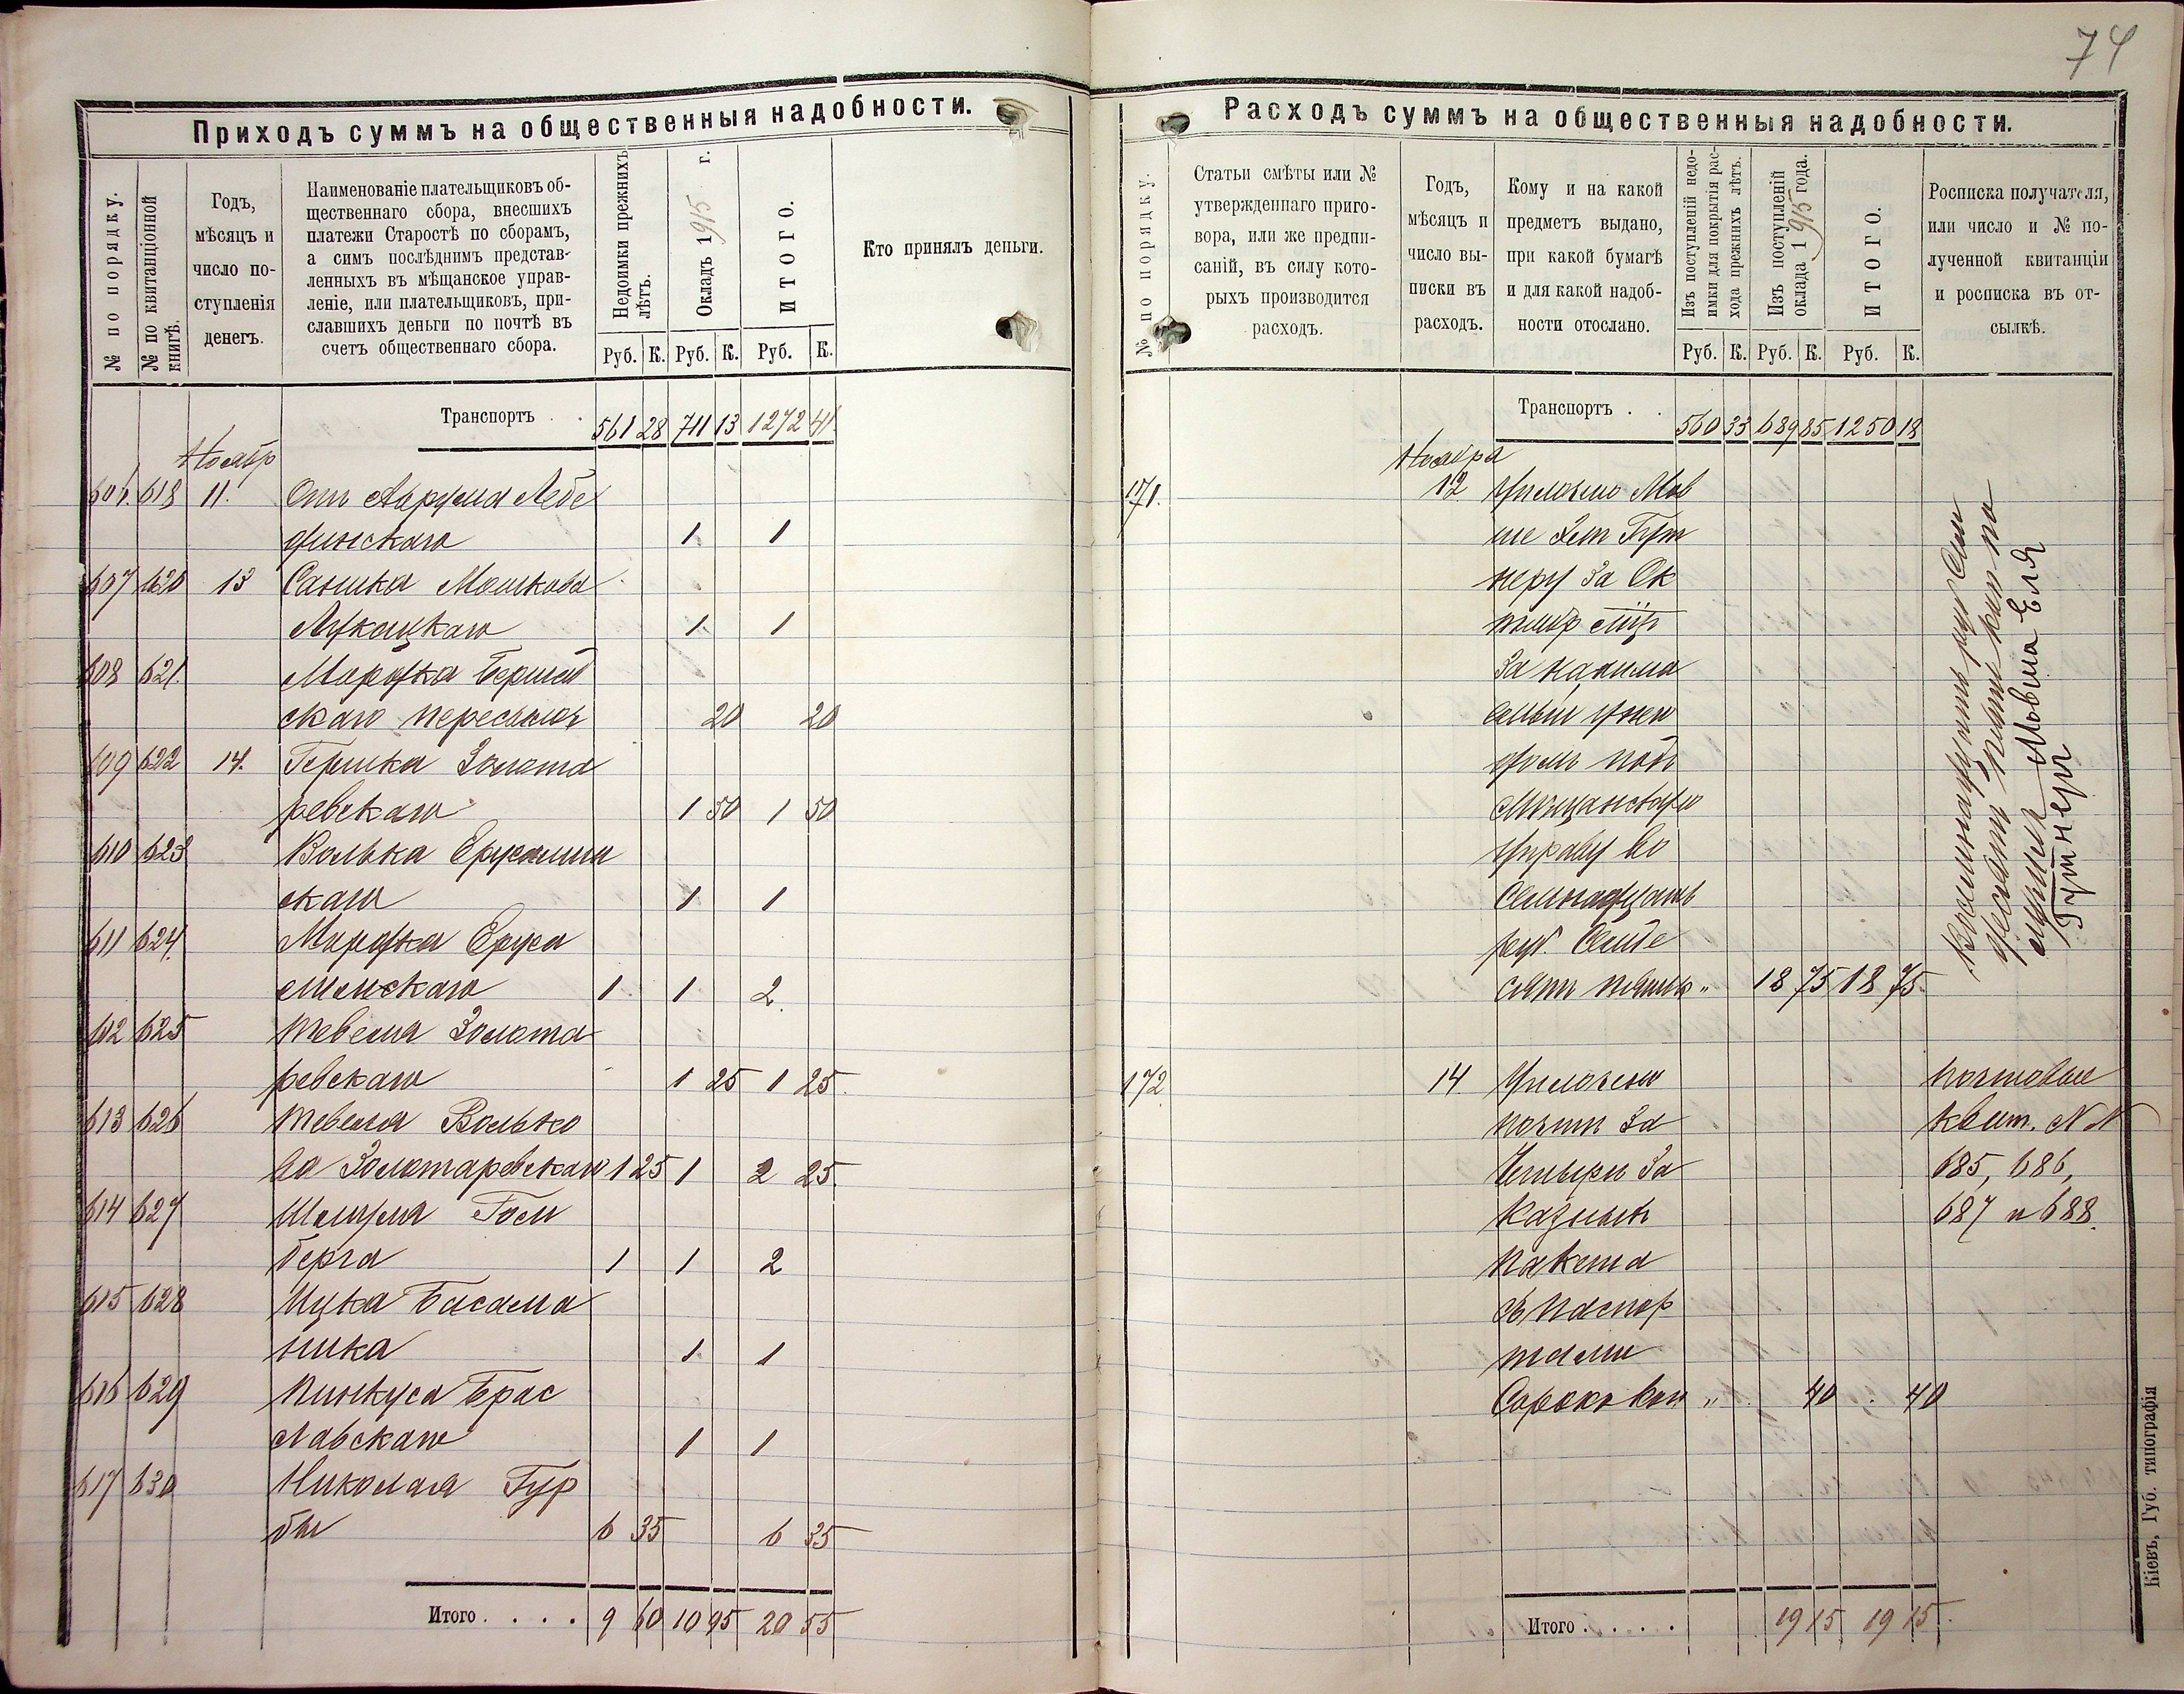 74
Приходъ суммъ на общественныя надобности.
№ по порядку.
№ по квитанціонной книгѣ.
Годъ,
мѣсяцъ и
число по-
ступленія
денегъ.
Наименованіе плательщиковъ об-
щественнаго сбора, внесшихъ
платежи Старостѣ по сборамъ,
а симъ послѣднимъ представ-
ленныхъ въ мѣщанское управ-
леніе, или плательщиковъ, при-
славшихъ деньги по почтѣ въ
счетъ общественнаго сбора.
Недоимки прежнихъ
лѣтъ.
Окладъ 1915 г.
ИТОГО.
Кто принялъ деньги.
Руб. К. Руб. К. Руб. К.
Транспортъ . . 561 28 711 13 1272 41
Ноябр
606. 618 11. Отъ Аврума Лебе
динскаго 1 1
607 620 13 Сашка Мошкова
Лукацкаго 1 1
608 621. Мордка Бершед
скаго пересылоч 20 20
609 622 14. Гершка Золота
ревскаго 1 50 1 50
610 623 Волька Ерусалим
скаго 1 1
611 624. Мордка Еруса
лимскаго 1 1 2
612 625 Тевеля Золота
ревскаго 1 25 1 25.
613 626 Тевеля Волько
ва Золотаревскаго 1 25 1 2 25.
614 627 Шмуля Гольд
берга 1 1 2
615 628 Ицка Басама
ника 1 1
616 629 Пинкуса Брас
лавскаго 1 1
617 630 Николая Гур
бы 6 35 6 35
Итого . . . . 9 60 10 95 20 55
Расходъ суммъ на общественныя надобности.
№ по порядку.
Статьи смѣты или №
утвержденнаго приго-
вора, или же предпи-
саній, въ силу кото-
рыхъ производится
расходъ.
Годъ,
мѣсяцъ и
число вы-
писки въ
расходъ.
Кому и на какой
предметъ выдано,
при какой бумагѣ
и для какой надоб-
ности отослано.
Изъ поступленій недо-
имки для покрытія рас-
хода прежнихъ лѣтъ.
Изъ поступленій
оклада 1915 года.
ИТОГО.
Росписка получателя,
или число и № по-
лученной квитанціи
и росписка въ от-
сылкѣ.
Руб. К. Руб. К. Руб. К.
Транспортъ . . 560 33 689 85 1250 18
Ноября
171. 12 Уплочено Мов
ше Гут
неру за Ок
тябр мѣц
за

подъ
Мѣщанскую
Управу во
семнадцать
руб. семьде
сятъ пять к " 18 75 18 75.
Восемнадцать руб сем
десятъ пять коп по
лучил Мовша Еля
Гутнеръ
172 14 Уплочено
почтѣ за
четыре за
казныхъ
пакета
съ паспор
тами
Сорокъ коп " 40 40
почтовые
квит. N N
685, 686,
687 и 688.
Итого . . . . . 19 15 19 15.
Кіевъ, Губ. типографія